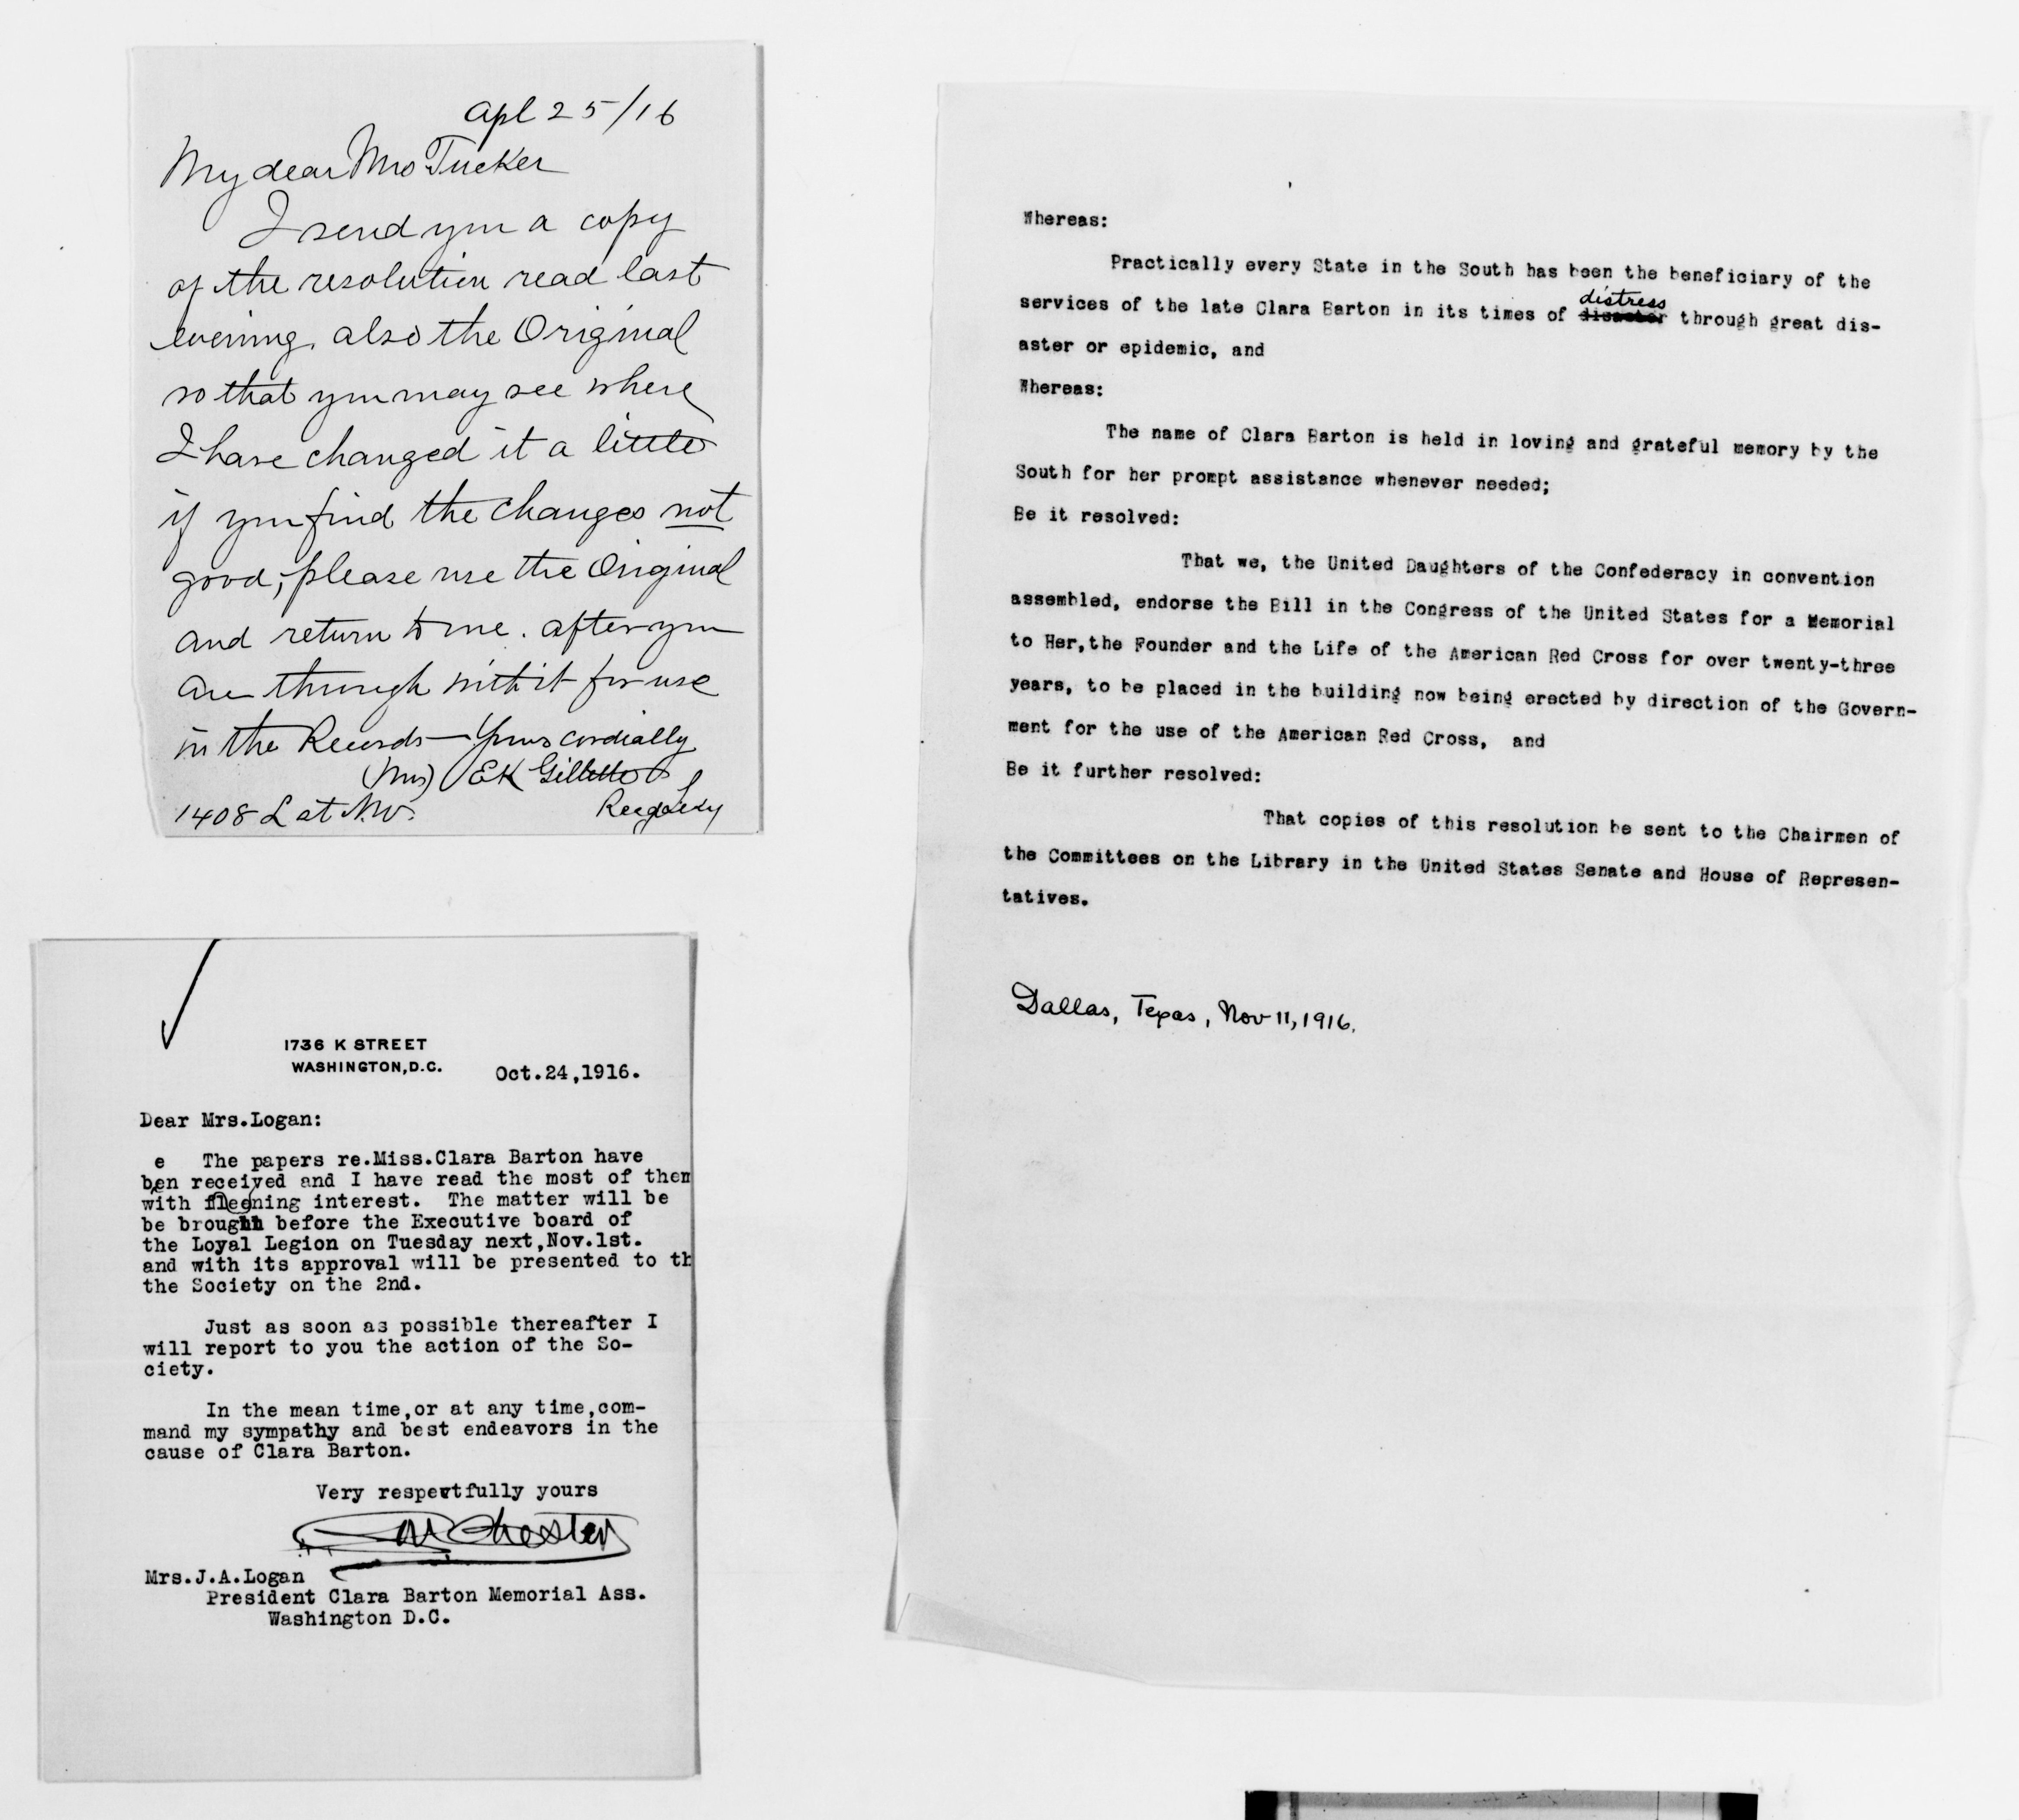 Apl 25/16
My dear Mrs Tucker
I send you a copy
of the resolution read last
evening, also the Original
so that you may see where
I have changed it a little
if you find the changes not
good, please use the Original
and return to me. after you
are through with it for use
in the Records— Yours cordially
(Mrs) EK Gillette
1408 L st N.W.
1736 K STREET
WASHINGTON, D.C.
Oct.24,1916.
Dear Mrs.Logan:
e The papers re.Miss.Clara Barton have
ben received and I have read the most of them
with interest. The matter will be
be brought before the Executive board of
the Loyal Legion on Tuesday next,Nov.1st.
and with its approval will be presented to th
the Society on the 2nd.
Just as soon as possible thereafter I
will report to you the action of the So-
ciety.
In the mean time,or at any time,com-
mand my sympathy and best endeavors in the
cause of Clara Barton.
Very respevtfully yours
Chester
Mrs.J.A.Logan
President Clara Barton Memorial Ass.
Washington D.C.
Whereas:
Practically every State in the South has been the beneficiary of the
distress
services of the late Clara Barton in its times of disaster through great dis-
aster or epidemic, and
Whereas:
The name of Clara Barton is held in loving and grateful memory by the
South for her prompt assistance whenever needed;
Be it resolved:
That we, the United Daughters of the Confederacy in convention
assembled, endorse the Bill in the Congress of the United States for a Memorial
to Her,the Founder and the Life of the American Red Cross for over twenty-three
years, to be placed in the building now being erected by direction of the Govern-
ment for the use of the American Red Cross, and
Be it further resolved:
That copies of this resolution be sent to the Chairmen of
the Committees on the Library in the United States Senate and House of Represen-
tatives.
Dallas, Texas, Nov 11, 1916.